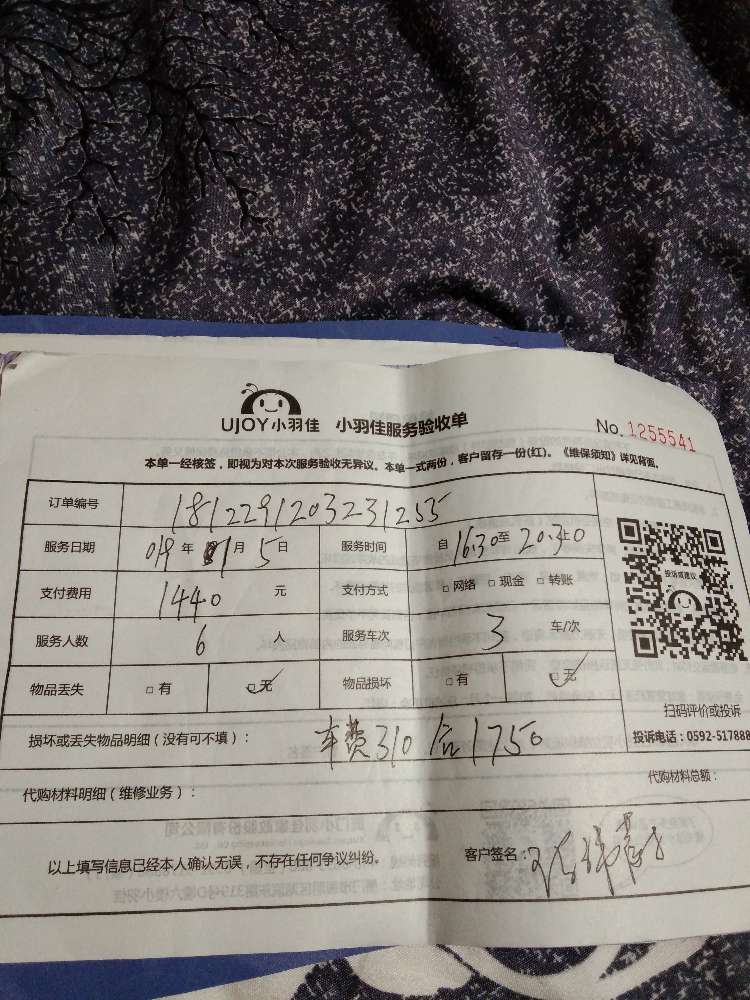 UJOY小羽佳 小羽佳服务验收单 No. 1255541
本单一经核签，即视为对本次服务验收无异议。本单一式两份，客户留存一份(红)。《维保须知》详见背面。
订单编号 1812291203231255
服务日期 019年01月5日 服务时间 自16:30至20:30止
支付费用 1440元 支付方式 □网络 □现金 □转账
投诉或建议
服务人数 6人 服务车次 3车/次
物品丢失 □有 ☑无 物品损坏 □有 ☑无
扫码评价或投诉
损坏或丢失物品明细（没有可不填）： 车费310 合1750
投诉电话：0592-517888
代购材料明细（维修业务）： 代购材料总额：
以上填写信息已经本人确认无误，不存在任何争议纠纷。 客户签名：